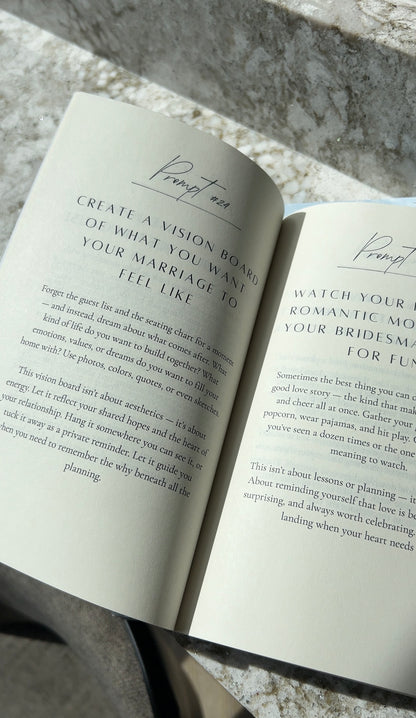 Prompt #24
CREATE A VISION BOARD
OF WHAT YOU WANT
YOUR MARRIAGE TO
FEEL LIKE
Forget the guest list and the seating chart for a moment
— and instead, dream about what comes after. What
kind of life do you want to build together? What
emotions, values, or dreams do you want to fill your
home with? Use photos, colors, quotes, or even sketches.
This vision board isn't about aesthetics — it's about
energy. Let it reflect your shared hopes and the heart of
your relationship. Hang it somewhere you can see it, or
tuck it away as a private reminder. Let it guide you
when you need to remember the why beneath all the
planning.
Prompt
WATCH YOUR
ROMANTIC
YOUR
FOR
Sometimes the best thing you can
good love story — the kind that
and cheer all at once. Gather your
popcorn, wear pajamas, and hit play.
you've seen a dozen times or the one
meaning to watch.
This isn't about lessons or planning —
About reminding yourself that love is
surprising, and always worth celebrating.
landing when your heart needs